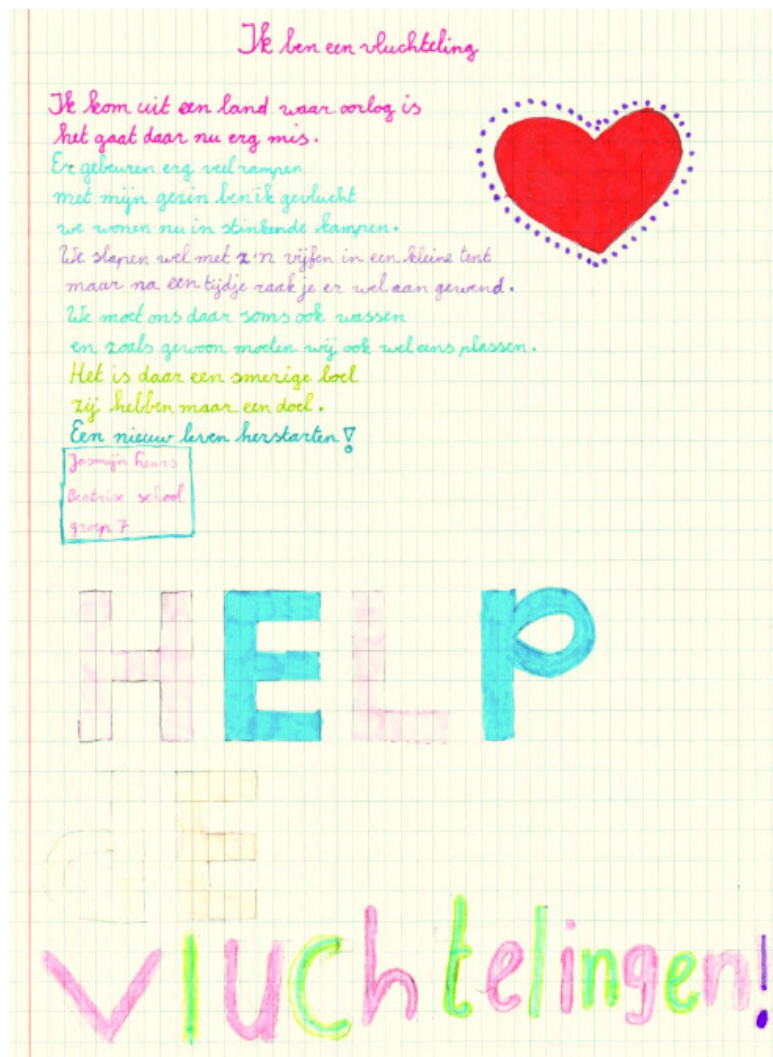 Ik ben een vluchteling
Ik kom uit een land waar oorlog is
het gaat daar nu erg mis.
Er gebeuren erg veel rampen
met mijn gezin ben ik gevlucht
we wonen nu in stinkende kampen.
We slapen wel met z'n vijfen in een kleine tent
maar na een tijdje raak je er wel aan gewend.
We moet ons daar soms ook wassen
en zoals gewoon moeten wij ook wel eens plassen.
Het is daar een smerige boel
zij hebben maar een doel.
Een nieuw leven herstarten!
Jasmijn heurs
Beatrix school
groep 7
HELP
dE
Vluchtelingen!